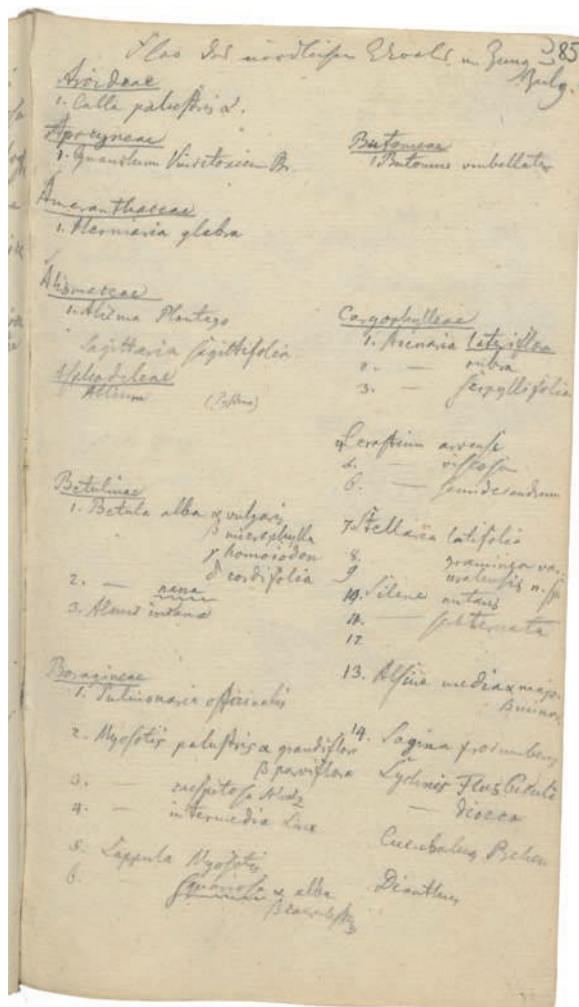 85
Flora des nördlichen Urals
Aroideae
1. Calla palustris α.
Apocyneae
1. Cynanchum Vincetoxicum Br.
Amaranthaceae
1. Herniaria glabra
Alismaceae
1. Alisma Plantago
Sagittaria sagittifolia
Asphodeleae
Allium
Betulinae
1. Betula alba α vulgaris
β microphylla
γ
δ cordifolia
2. — nana
3. Alnus incana
Boragineae
1. Pulmonaria officinalis
2. Myosotis palustris α grandiflora
β parviflora
3. — caespitosa
4. — intermedia Link
5. Lappula Myosotis
6. — squarrosa α alba
β
Butomeae
1. Butomus umbellatus
Caryophylleae
1. Arenaria lateriflora
2. — rubra
3. — serpyllifolia
4. Cerastium arvense
5. — viscosum
6. — semidecandrum
7. Stellaria latifolia
8. graminea var.
9 uralensis n. sp
10. Silene nutans
11. —
12
13. Alsine media α major
β minor
14. Sagina procumbens
Lychnis Flos Cuculi
— dioica
Cucubalus Behen
Dianthus